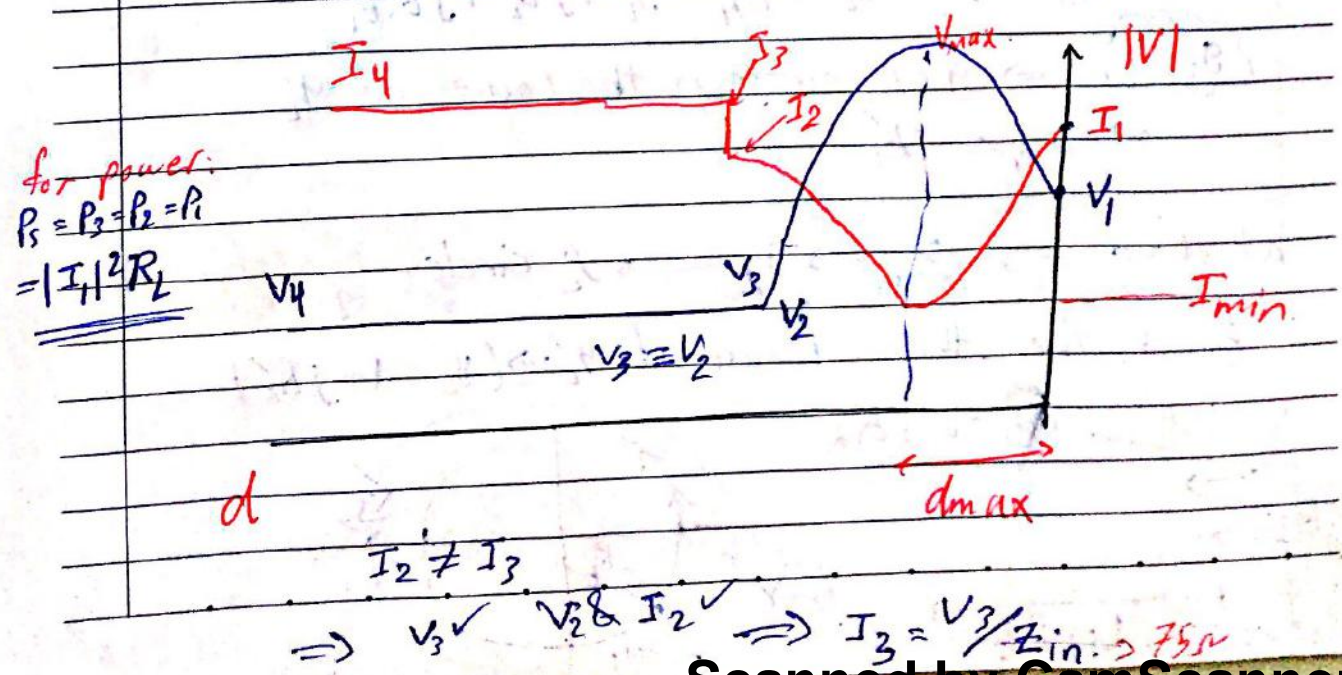 I4
I3
Vmax
|V|
I2
I1
for power:
P5 = P3 = P2 = P1
= |I1|² RL
V1
V4
V3
V2
Imin
V3 ≡ V2
d
dmax
I2 ≠ I3
⇒ V3 ✓ V2 & I2 ✓ ⇒ I3 = V3/Zin → 75Ω
Scanned by CamScanner